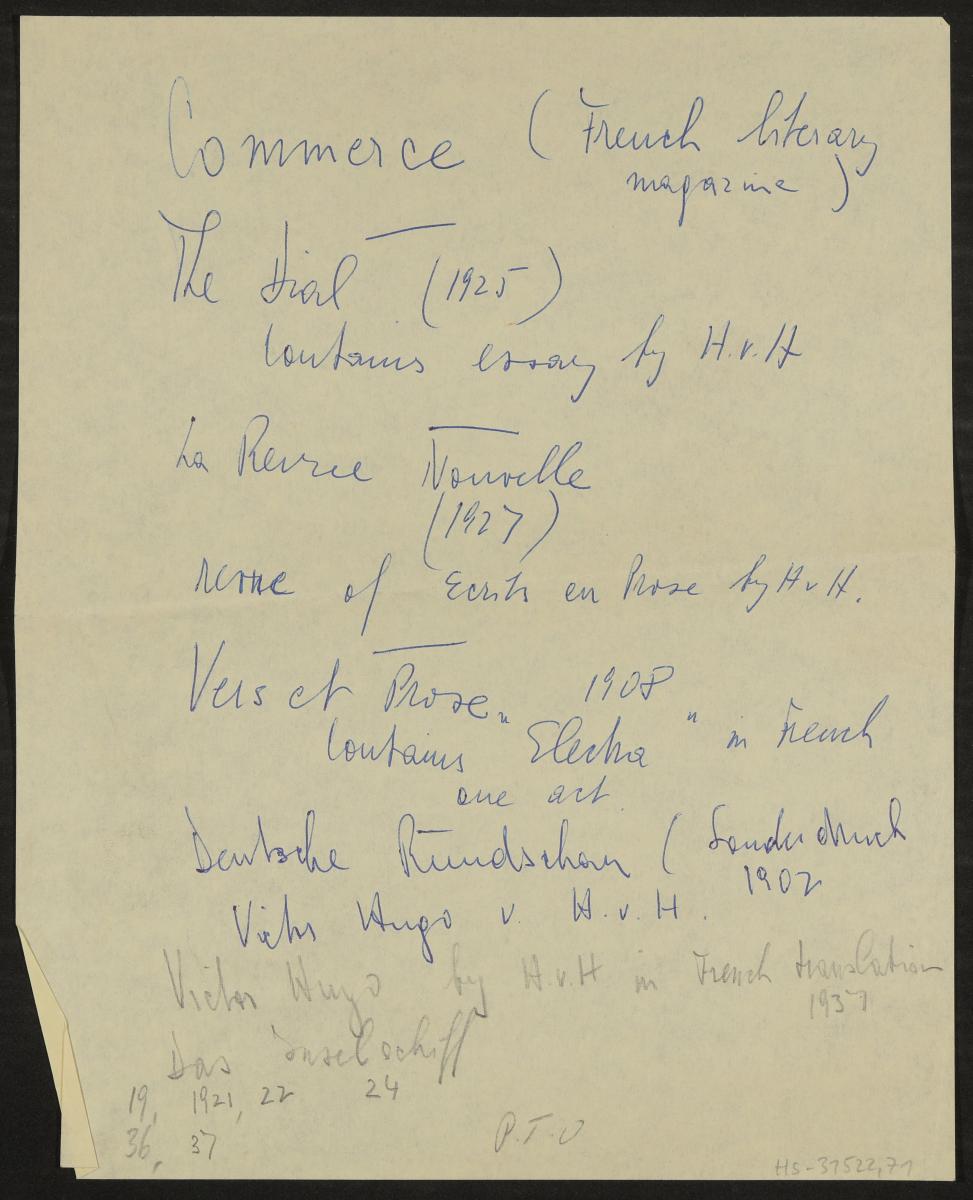 Commerce ( French literary
magazine )
The Dial (1925)
Contains essay by H.v.H
La Revue Nouvelle
(1927)
revue of Ecrits en Prose by H v H.
Vers et Prose 1908
Contains "Electra" in French
one act.
Deutsche Rundschau ( Sonderdruck
1902
Victor Hugo v. H.v.H.
Victor Hugo by H.v.H in French translation
1937
Das Inselschiff
19, 1921, 22 24
36, 37
P.T.O
HS-31522,71